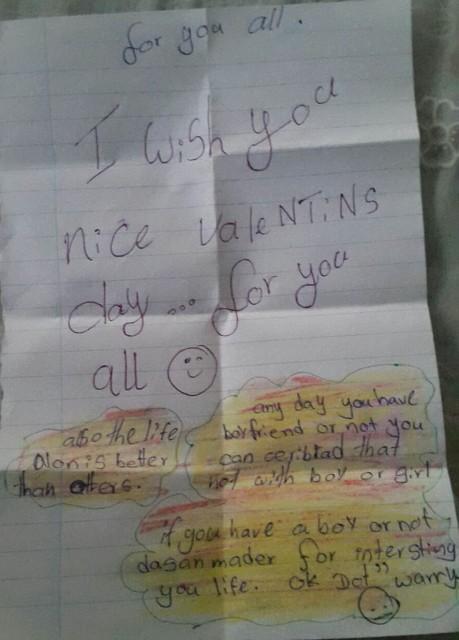 for you all.
I wish you
nice ValeNTiNS
day... for you
all
also the life
alon is better
than others.
any day you have
boyfriend or not you
can ceribtad that
not with boy or girl
if you have a boy or not
dasan mader for intersting
you life. ok Dot" warry